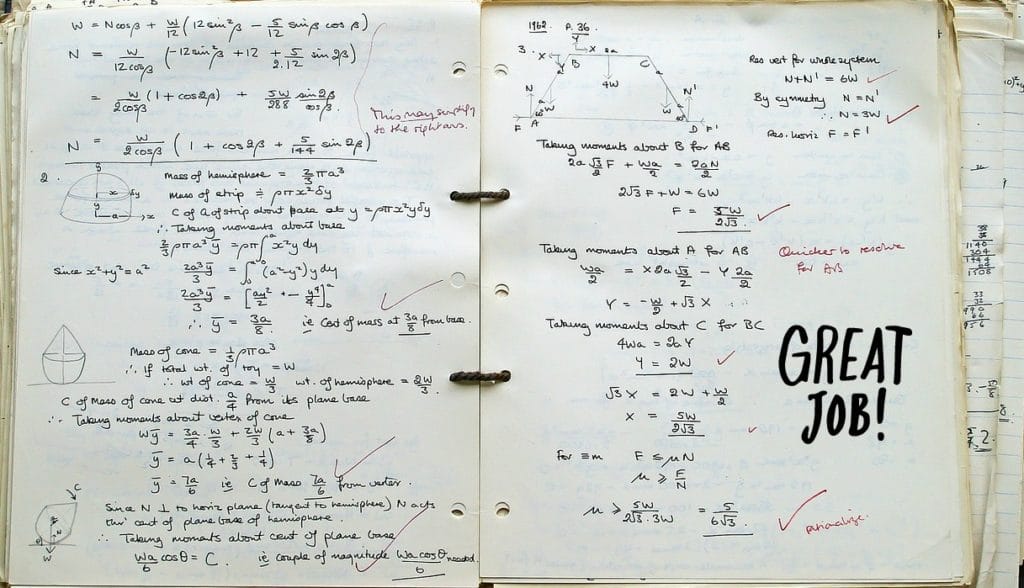 W = Ncosβ + W/12 (12sin²β − 5/12 sinβ cosβ)
N = W/12cosβ (−12sin²β + 12 + 5/2.12 sin2β)
= W/2cosβ (1 + cos2β) + 5W/288 sin2β/cosβ.
This may simplify
to the right ans.
N = W/2cosβ (1 + cos2β + 5/144 sin2β)
2.
Mass of hemisphere = 2/3 πa³
Mass of strip ≡ ρπx²δy
C of G of strip about base at y = ρπx²yδy
∴ Taking moments about base
2/3 ρπa³ȳ = ρπ∫₀ᵃ x²y dy
Since x²+y² = a² 2a³ȳ/3 = ∫₀ᵃ (a²−y²) y dy
2a³ȳ/3 = [ay²/2 + − y⁴/4]₀ᵃ
∴ ȳ = 3a/8. ie Cent of mass at 3a/8 from base.
Mass of cone = 1/3 ρπa³
∴ If total wt. of toy = W
∴ wt of cone = W/3 wt. of hemisphere = 2W/3.
C of Mass of cone at dist. a/4 from its plane base
∴ Taking moments about vertex of cone
Wȳ = 3a/4 . W/3 + 2W/3 (a + 3a/8)
ȳ = a(1/4 + 2/3 + 1/4)
ȳ = 7a/6 ie C of Mass 7a/6 from vertex.
C
N
W
Since N ⊥ to horiz plane (tangent to hemisphere) N acts
thr' cent of plane base of hemisphere.
∴ Taking moments about cent of plane base
Wa/6 cosθ = C. ie couple of magnitude Wa cosθ/6 needed.
1962. P. 36
3.
Y
X X 2a
Y B C
4W
N W W N'
F A D F'
Res vert for whole system
N+N' = 6W
By symmetry N = N'
∴ N = 3W
Res. horiz F = F'
Taking moments about B for AB
2a√3/2 F + Wa/2 = 2aN/2
2√3 F + W = 6W
F = 5W/2√3
Taking moments about A for AB
Quicker to resolve
for AB
Wa/2 = X 2a√3/2 − Y 2a/2
Y = −W/2 + √3 X
Taking moments about C for BC
4Wa = 2aY
Y = 2W
√3 X = 2W + W/2
X = 5W/2√3
GREAT
JOB!
For ≡m F ≤ μN
μ ≥ F/N
μ ≥ 5W/2√3.3W = 5/6√3.
rationalise.